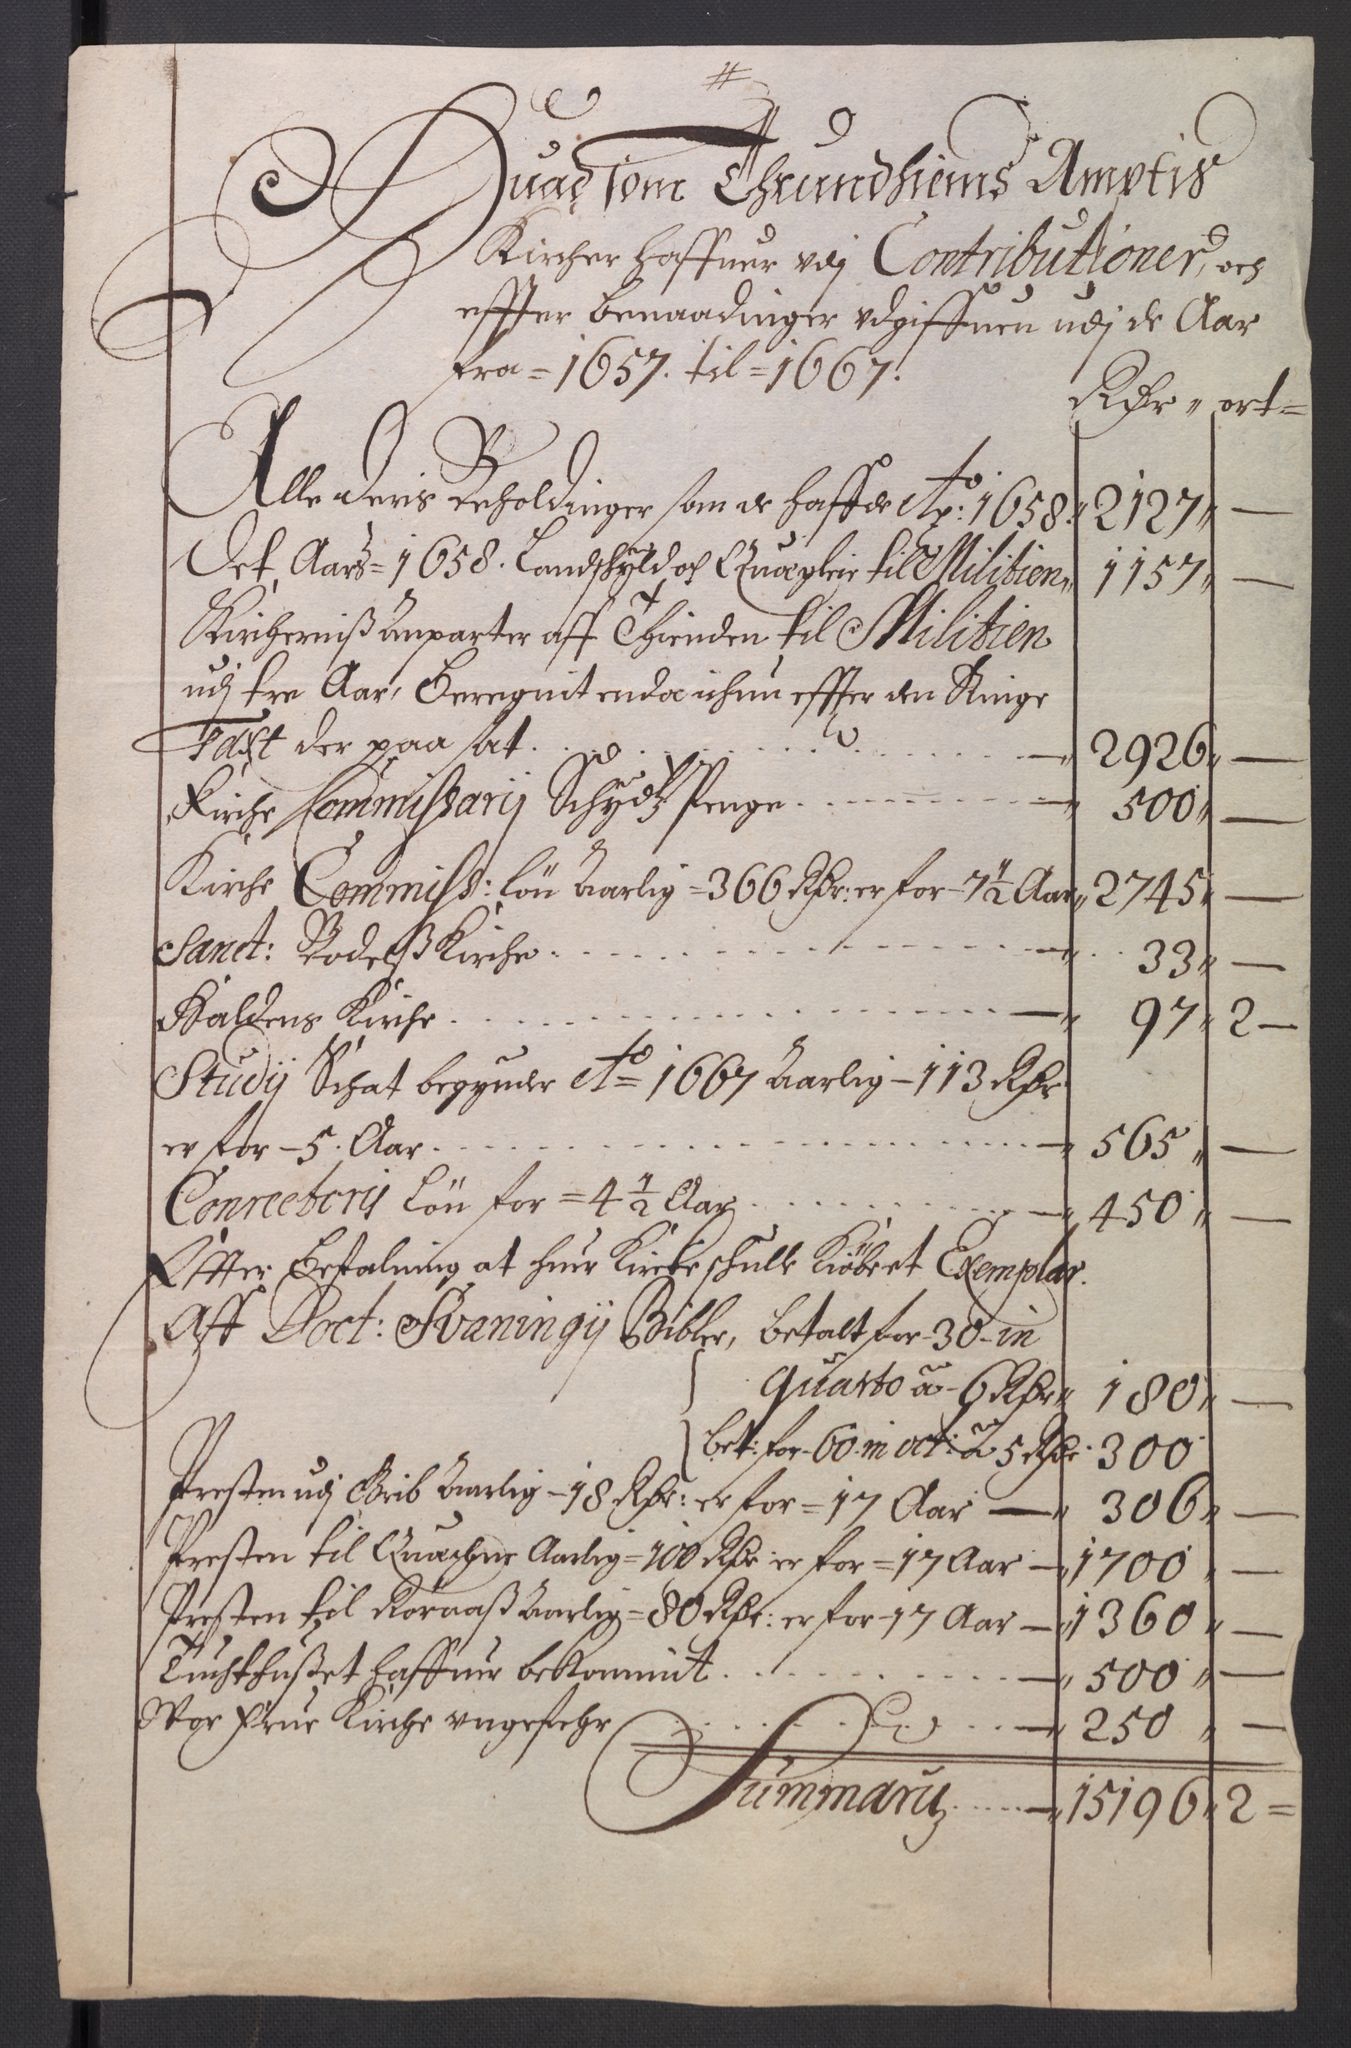 Huad som Thrundhiems Amptis
Kircher haffuer vdj Contributioner, och
effter benaadinger vdgiffuen udj de Aar
fra = 1657. til = 1667.
Rdr „ ort =
Alle deris Beholdinger som de haffde Ao: 1658 „ 2127 „ —
Det Aars = 1658. Landschyld och Quægleie til Militien „ 1157 „ —
Kircherniß Anparter aff Thienden til Militien
udj tre Aar, Beregnit endda ichun effter den Ringe
Taxt der paa sat . . . — „ 2926 „ —
Kirche Commissarij Schydtz Penge . . . — „ 500 „ —
Kirche Commiss: Løn Aarlig = 366 Rdr: er for — 7 1/2 Aar „ 2745 „ —
Sanct: Bodelß Kirche . . . — „ 33 „ —
Haldens Kirche . . . — „ 97 „ 2 —
Studij Schat begynder Ao = 1667 Aarlig — 113 Rdr
er for — 5. Aar . . . — „ 565 „ —
Conrectoris Løn for = 4 1/2 Aar . . . — „ 450 „ —
Effter Befalning at huer Kircke schulle Kiøbe et Exemplar
Aff Doct: Svaningij Bibler, betalt for 30 in
quarto a 6 Rdr „ 180 „ —
bet: for 60 in oct: a 5 Rdr 300
Presten udj Grib Aarlig — 18 Rdr: er for = 17 Aar — „ 306 „ —
Presten til Quachne Aarlig = 100 Rdr er for = 17 Aar — „ 1700 „ —
Presten til Röraaß Aarlig = 80 Rdr: er for 17 Aar — „ 1360 „ —
Tuchthußet haffuer bekommit . . . — „ 500 „ —
Vor Frue Kirche ungefehr . . . — „ 250 „ —
Summarum . . . — „ 15196 „ 2 =